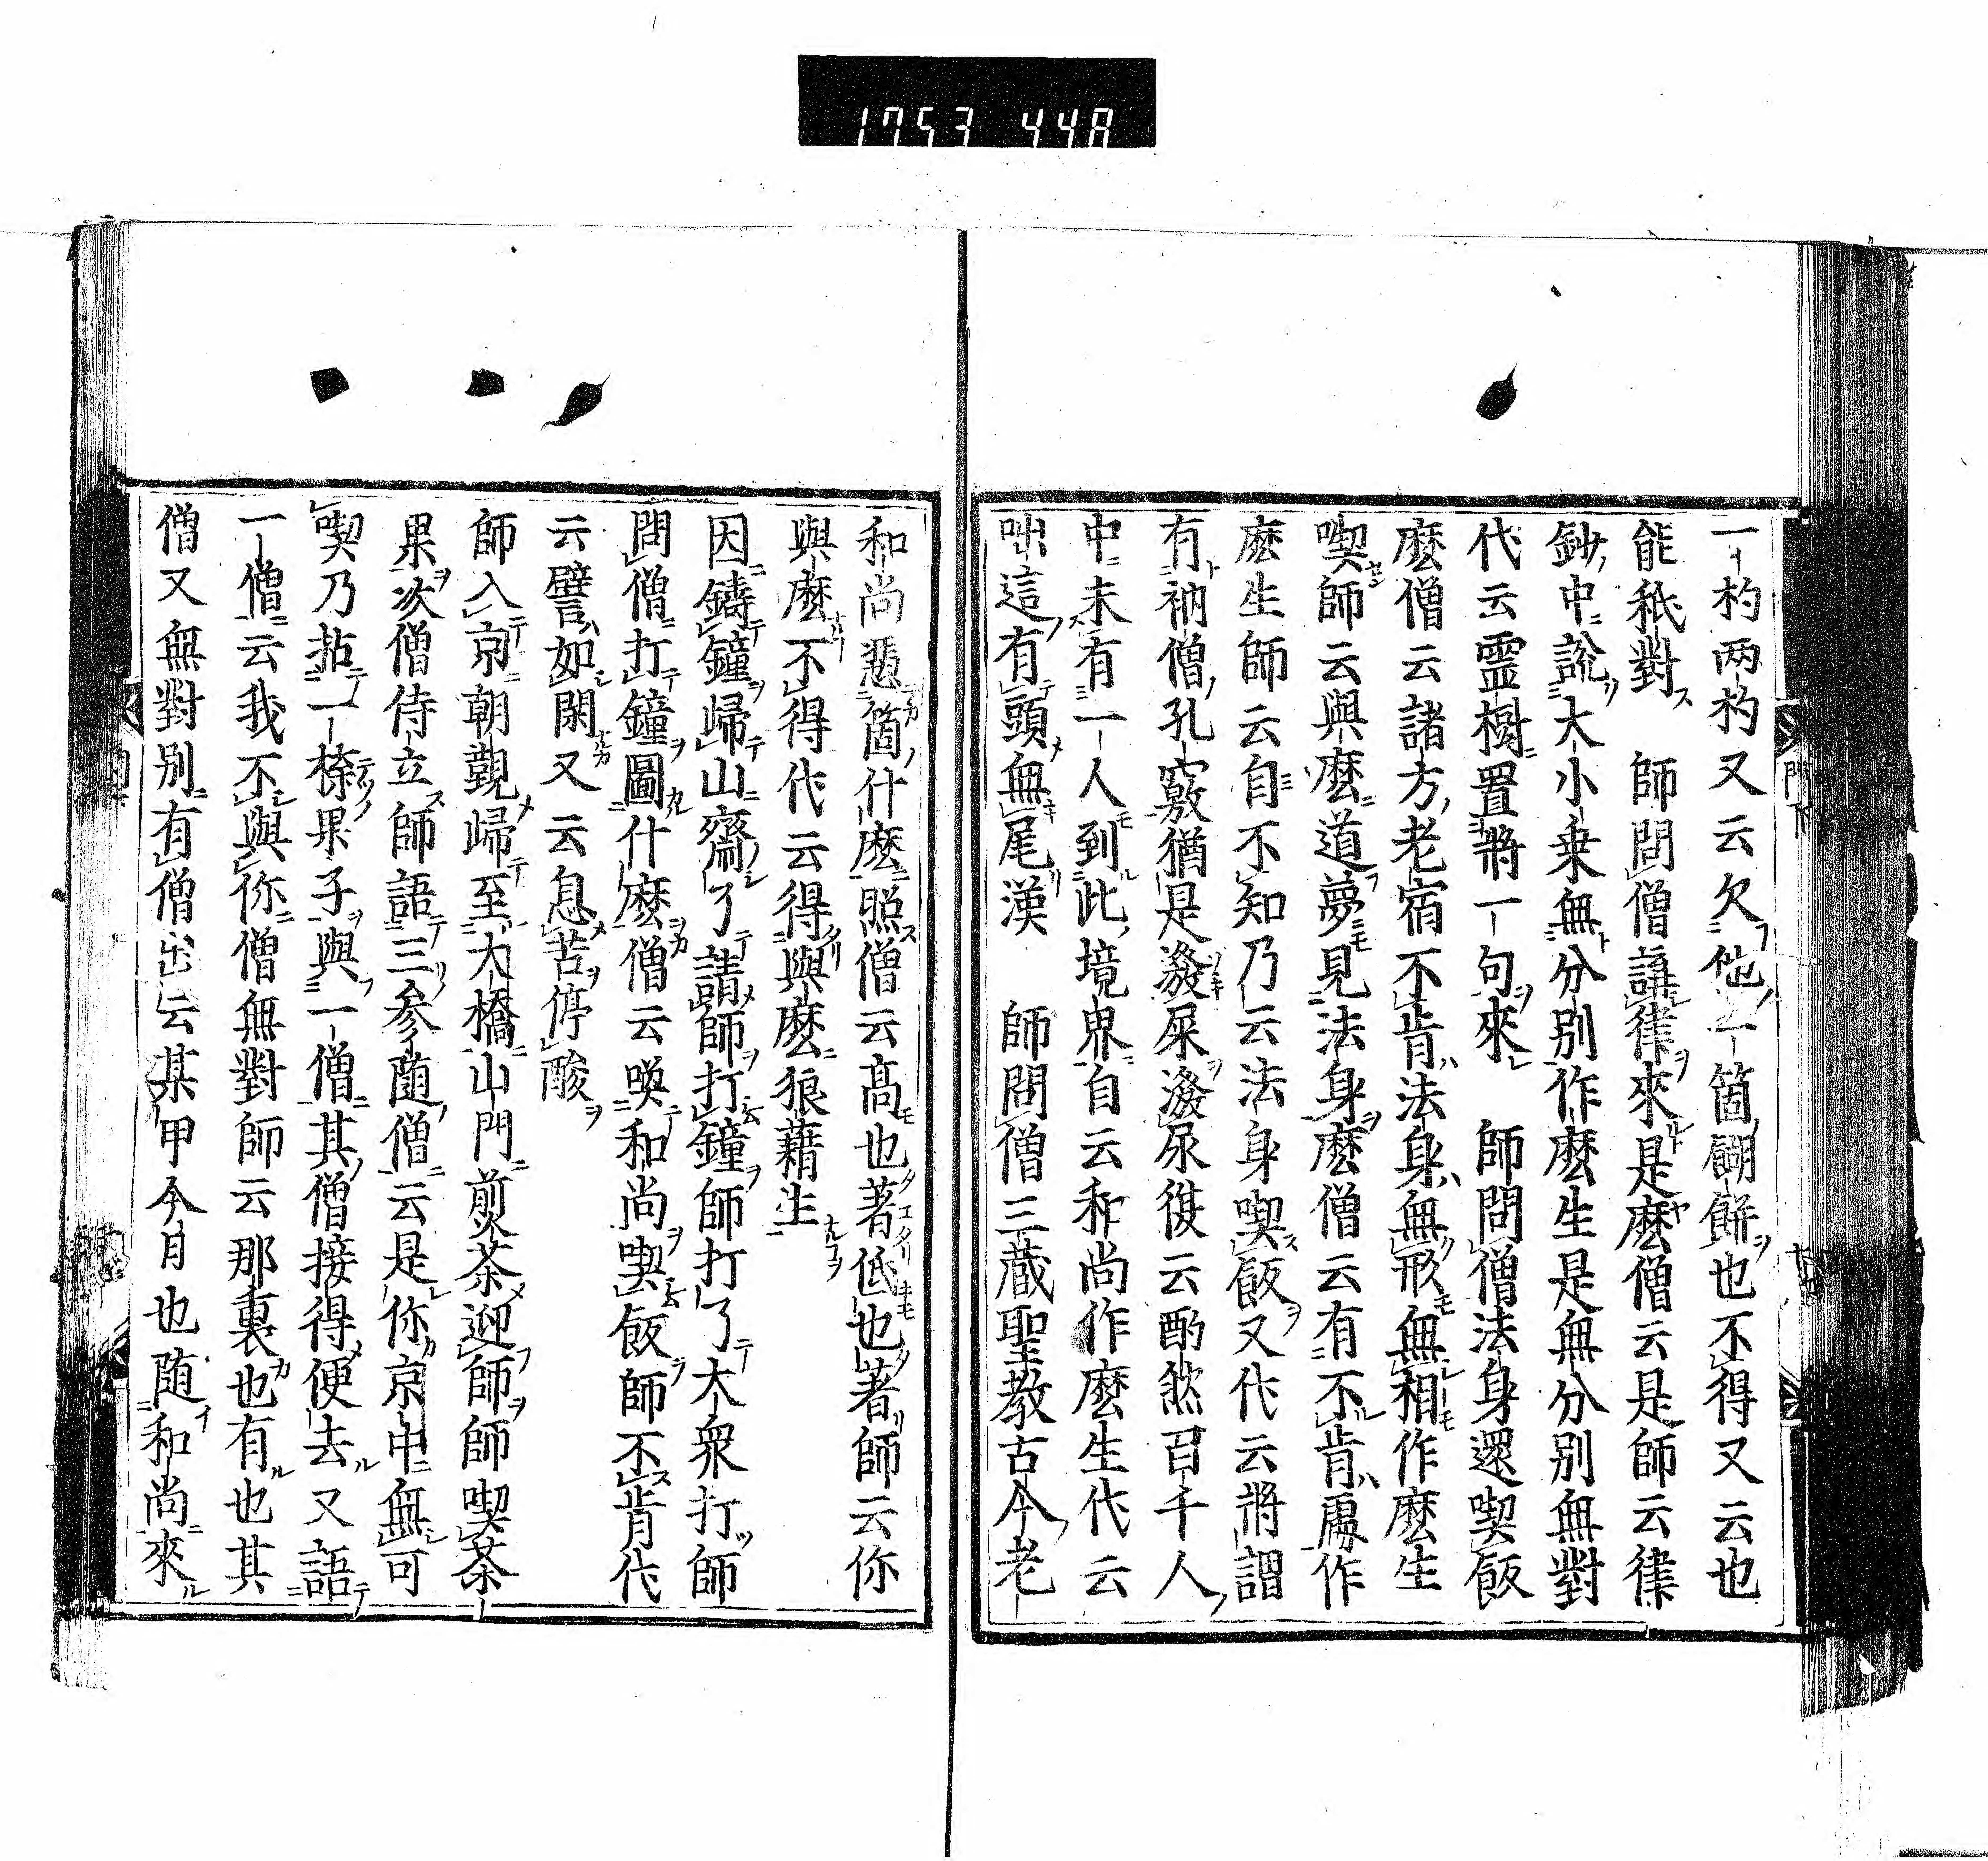 1753 448
一杓两杓又云欠他一箇餬餅也不得又云也
能秖對　師問僧講律來是麽僧云是師云律
鈔中說大小乗無分別作麽生是無分別無對
代云霊樹置將一句來　師問僧法身還喫飯
麽僧云諸方老宿不肯法身無形無相作麽生
喫師云與麽道夢見法身麽僧云有不肯處作
麽生師云自不知乃云法身喫飯又代云將謂
有衲僧孔竅猶是潑屎潑尿復云酌然召千人
中未有一人到此境界自云和尚作麽生代云
咄這有頭無尾漢　師問僧三蔵聖教古今老
和尚慿箇什麽照僧云髙也著低也著師云你
與麽不得代云得與麽狼藉生
因鑄鐘歸山齋了請師打鐘師打了大衆打師
問僧打鐘圖什麽僧云喚和尚喫飯師不肯代
云譬如閑又云息苦停酸
師入京朝觀歸至大橋山門煎茶迎師師喫茶
果次僧侍立師語三參随僧云是你京中無可
喫乃拈一㮈果子與一僧其僧接得便去又語
一僧云我不與你僧無對師云那裏也有也其
僧又無對別有僧出云某甲今日也随和尚來
門下